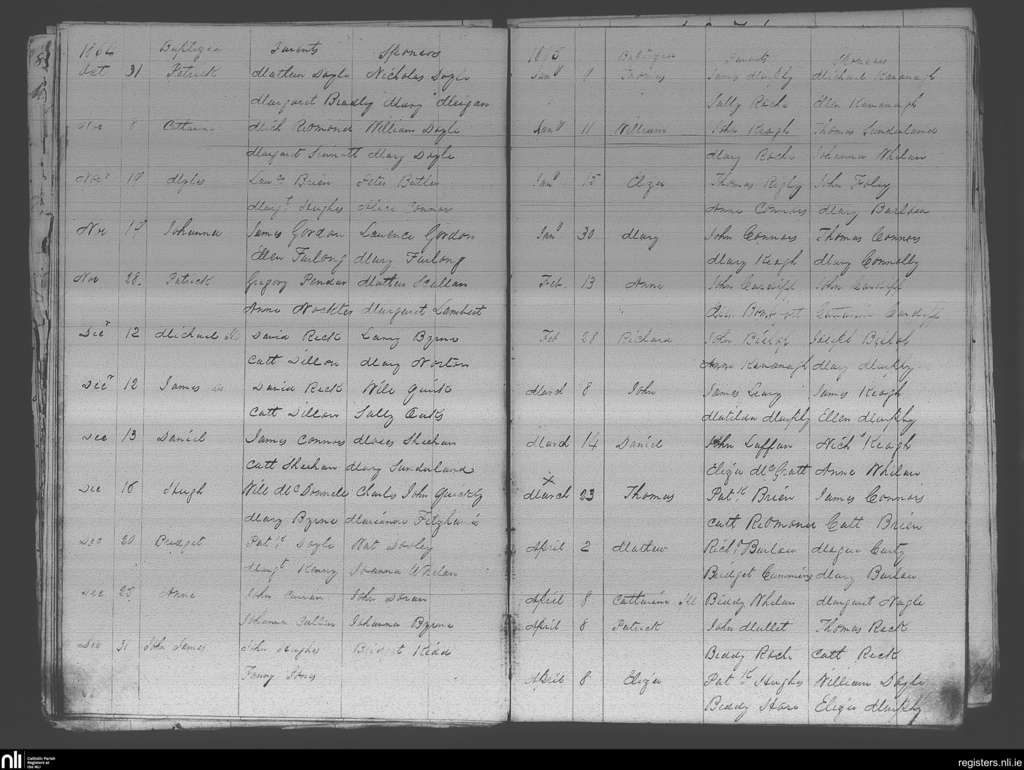 1864 Baptized Parents Sponsors
Oct 31 Patrick Mathew Doyle Nicholas Doyle
Margaret Mary
Nov 8 Catherine Mich Redmond William Doyle
Margaret Sinnott Mary Doyle
Novr 19 Myles Lawce Brien Peter Butler
Margt Hughes Alice Connor
Nov 19 Johanna James Gordon Laurence Gordon
Ellen Furlong Mary Furlong
Nov 28 Patrick Gregory Mathew Scallan
Anne Margaret Lambert
Decr 12 Michael David Reck Larry Byrne
Catt Dillon Mary Norton
Decr 12 James David Reck Will Quirk
Catt Dillon Sally
Dec 13 Daniel James Connors Moses Sheehan
Catt Sheehan Mary Sunderland
Dec 16 Hugh Will McDonnell Charles John
Mary Byrne Marianne
Dec 20 Bridget Patk Doyle Pat Dooley
Margt Kenny Joanna Whelan
Dec 25 Anne John Curran John Doran
Johanna Johanna Byrne
Dec 31 John James John Hughes Bridget Kidd
Fanny Jones
1865 Baptized Parents Sponsors
Jany 9 Thomas James Murphy Michael Kavanagh
Sally Roche Ellen Kavanagh
Jany 11 William John Keogh Thomas Sunderland
Mary Roche Johanna Whelan
Jany 15 Eliza Thomas Rigby John Foley
Anne Connors Mary Barlow
Jany 30 Mary John Connors Thomas Connors
Mary Keogh Mary Connolly
Feb 13 Anne John Cardiff John Cardiff
Cardiff
Feb 28 Richard John Bishop Joseph Bishop
Anne Kavanagh Mary Murphy
March 8 John James Leary James Keogh
Matilda Murphy Ellen Murphy
March 14 Daniel John Laffan Nichs Keogh
Eliza McGratt Anne Whelan
X
March 23 Thomas Patk Brien James Connors
Catt Redmond Catt Brien
April 2 Mathew Richd Barlow Carty
Bridget Cummins Mary Barlow
April 8 Catherine Ill Biddy Whelan Margaret Nagle
April 8 Patrick John Mullet Thomas Reck
Biddy Roch Catt Reck
April 8 Eliza Patk Hughes William Doyle
Biddy Hore Eliza Murphy
nli Catholic Parish Registers at the NLI
registers.nli.ie